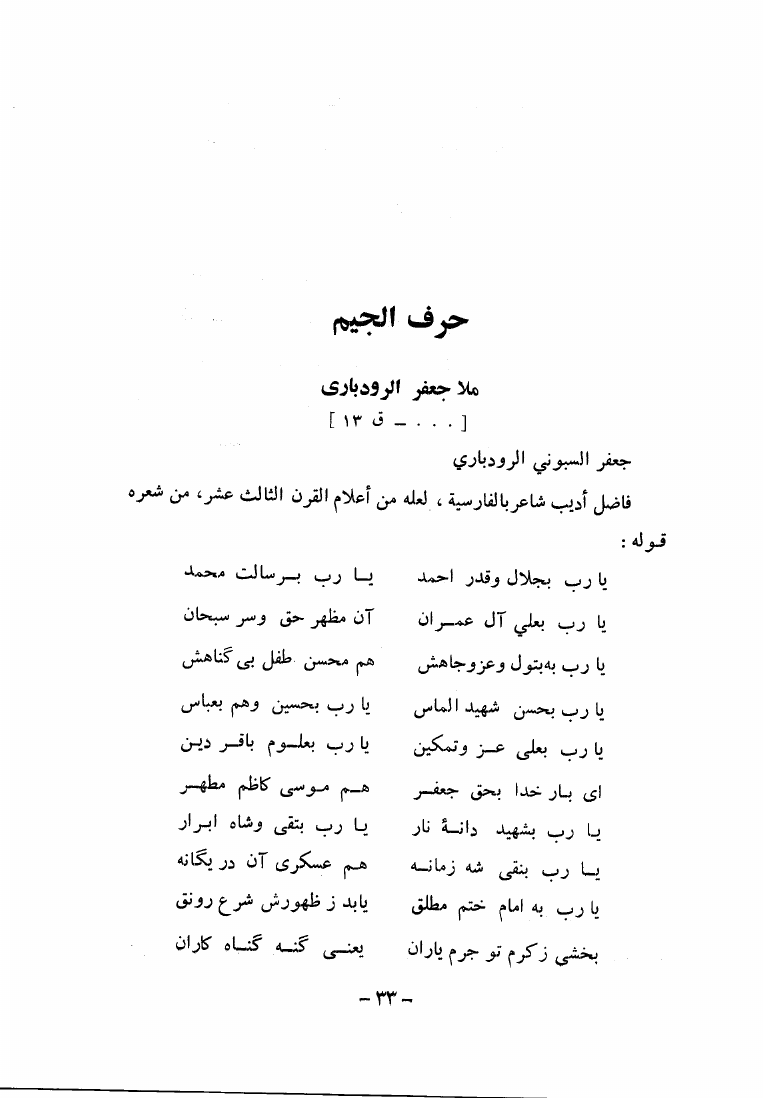 حرف الجيم
ملا جعفر الرودباری
[ . . . ــ ق ١٣ ]
جعفر السبوني الرودباري
فاضل أديب شاعر بالفارسية ، لعله من أعلام القرن الثالث عشر، من شعره
قـوله :
يا رب بجلال وقدر احمد يــا رب بــرسالت محمد
يا رب بعلي آل عمــران آن مظهر حق وسر سبحان
يا رب به بتول وعزوجاهش هم محسن طفل بی گناهش
يا رب بحسن شهيد الماس يا رب بحسين وهم بعباس
يا رب بعلی عــز وتمكين يا رب بعلــوم باقــر ديـن
ای بــار خدا بحق جعفــر هــم مـوسی كاظم مطهــر
يــا رب بشهيد دانــۀ نار يــا رب بتقی وشاه ابـرار
يــا رب بنقی شه زمانــه هم عسكری آن در يگانه
يا رب به امام ختم مطلق يابد ز ظهورش شرع رونق
بخشي زكرم تو جرم ياران يعنــی گنــه گنــاه كاران
– ٣٣ –